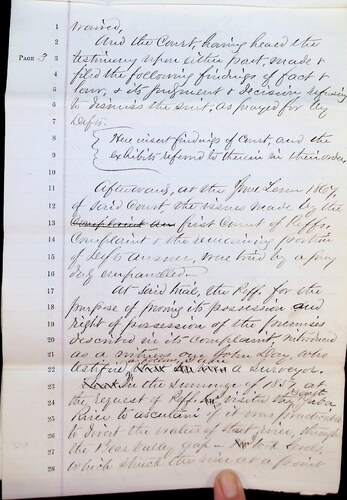 PAGE 3
1 waived,
2 And the Court, having heard the
3 testimony upon either part, made &
4 filed the following findings of fact &
5 law, & its judgment & decision refusing
6 to dismiss the suit, as prayed for by
7 Defts.
8 Here insert findings of Court, and the
9 exhibits referred to therein in their order.
10
11 Afterward, at the June Term 1867,
12 of said Court, the issues made by the
13 Complaint and first Count of Plffs.
14 Complaint & the remaining portion
15 of Defts Answer, were tried by a jury
16 duly empanelled.
17 At said trial, the Plff. for the
18 purpose of proving its possession and
19 right of possession of the premises
20 described in its complaint, introduced
21 as a witness one John Day, who
22 testified a surveyor.
23 In the summer of 18 at
24 the request of Plff. visited the
25 River to ascertain if it was practicable
26 to divert the water of that river, through
27 the Bear Valley gap - took levels,
28 which struck the river at a point